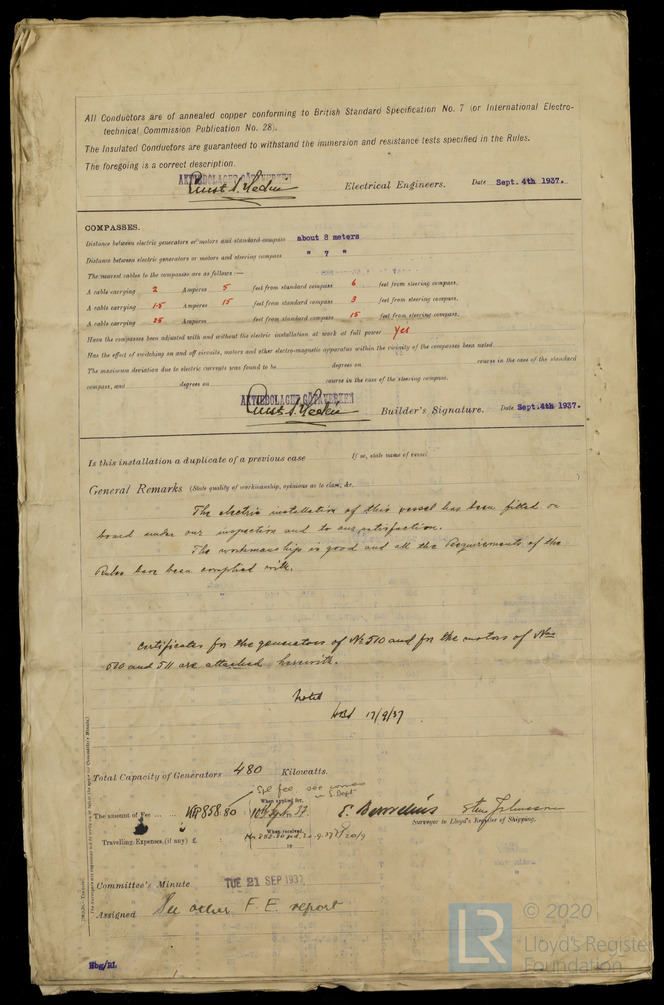 All Conductors are of annealed copper conforming to British Standard Specification No. 7 (or International Electro-
technical Commission Publication No. 28).
The Insulated Conductors are guaranteed to withstand the immersion and resistance tests specified in the Rules.
The foregoing is a correct description.
AKTIEBOLAGET GÖTAVERKEN
Electrical Engineers. Date Sept. 4th 1937.
COMPASSES.
Distance between electric generators or motors and standard compass about 8 meters
Distance between electric generators or motors and steering compass " 7 "
The nearest cables to the compasses are as follows:—
A cable carrying 2 Ampères 5 feet from standard compass 6 feet from steering compass.
A cable carrying 1·5 Ampères 15 feet from standard compass 3 feet from steering compass.
A cable carrying 25 Ampères feet from standard compass 15 feet from steering compass.
Have the compasses been adjusted with and without the electric installation at work at full power Yes
Has the effect of switching on and off circuits, motors and other electro-magnetic apparatus within the vicinity of the compasses been noted
The maximum deviation due to electric currents was found to be degrees on course in the case of the standard
compass, and degrees on course in the case of the steering compass.
AKTIEBOLAGET GÖTAVERKEN
Builder's Signature. Date Sept. 4th 1937.
Is this installation a duplicate of a previous case If so, state name of vessel
General Remarks (State quality of workmanship, opinions as to class, &c. )
The electric installation of this vessel has been fitted on
board under our inspection and to our satisfaction.
The workmanship is good and all the Requirements of the
Rules have been complied with.
Certificates for the generators of No 510 and for the motors of Nos
510 and 511 are attached herewith.
Noted
17/9/37
Total Capacity of Generators 480 Kilowatts.
Spl fee see
The amount of Fee ... ... 858.80 When applied for,
Surveyor to Lloyd's Register of Shipping.
Travelling Expenses (if any) £ When received,
19
Committee's Minute TUE 21 SEP 1937
Assigned See other F.E. report
Hbg/RL
LR © 2020
Lloyd's Register
Foundation